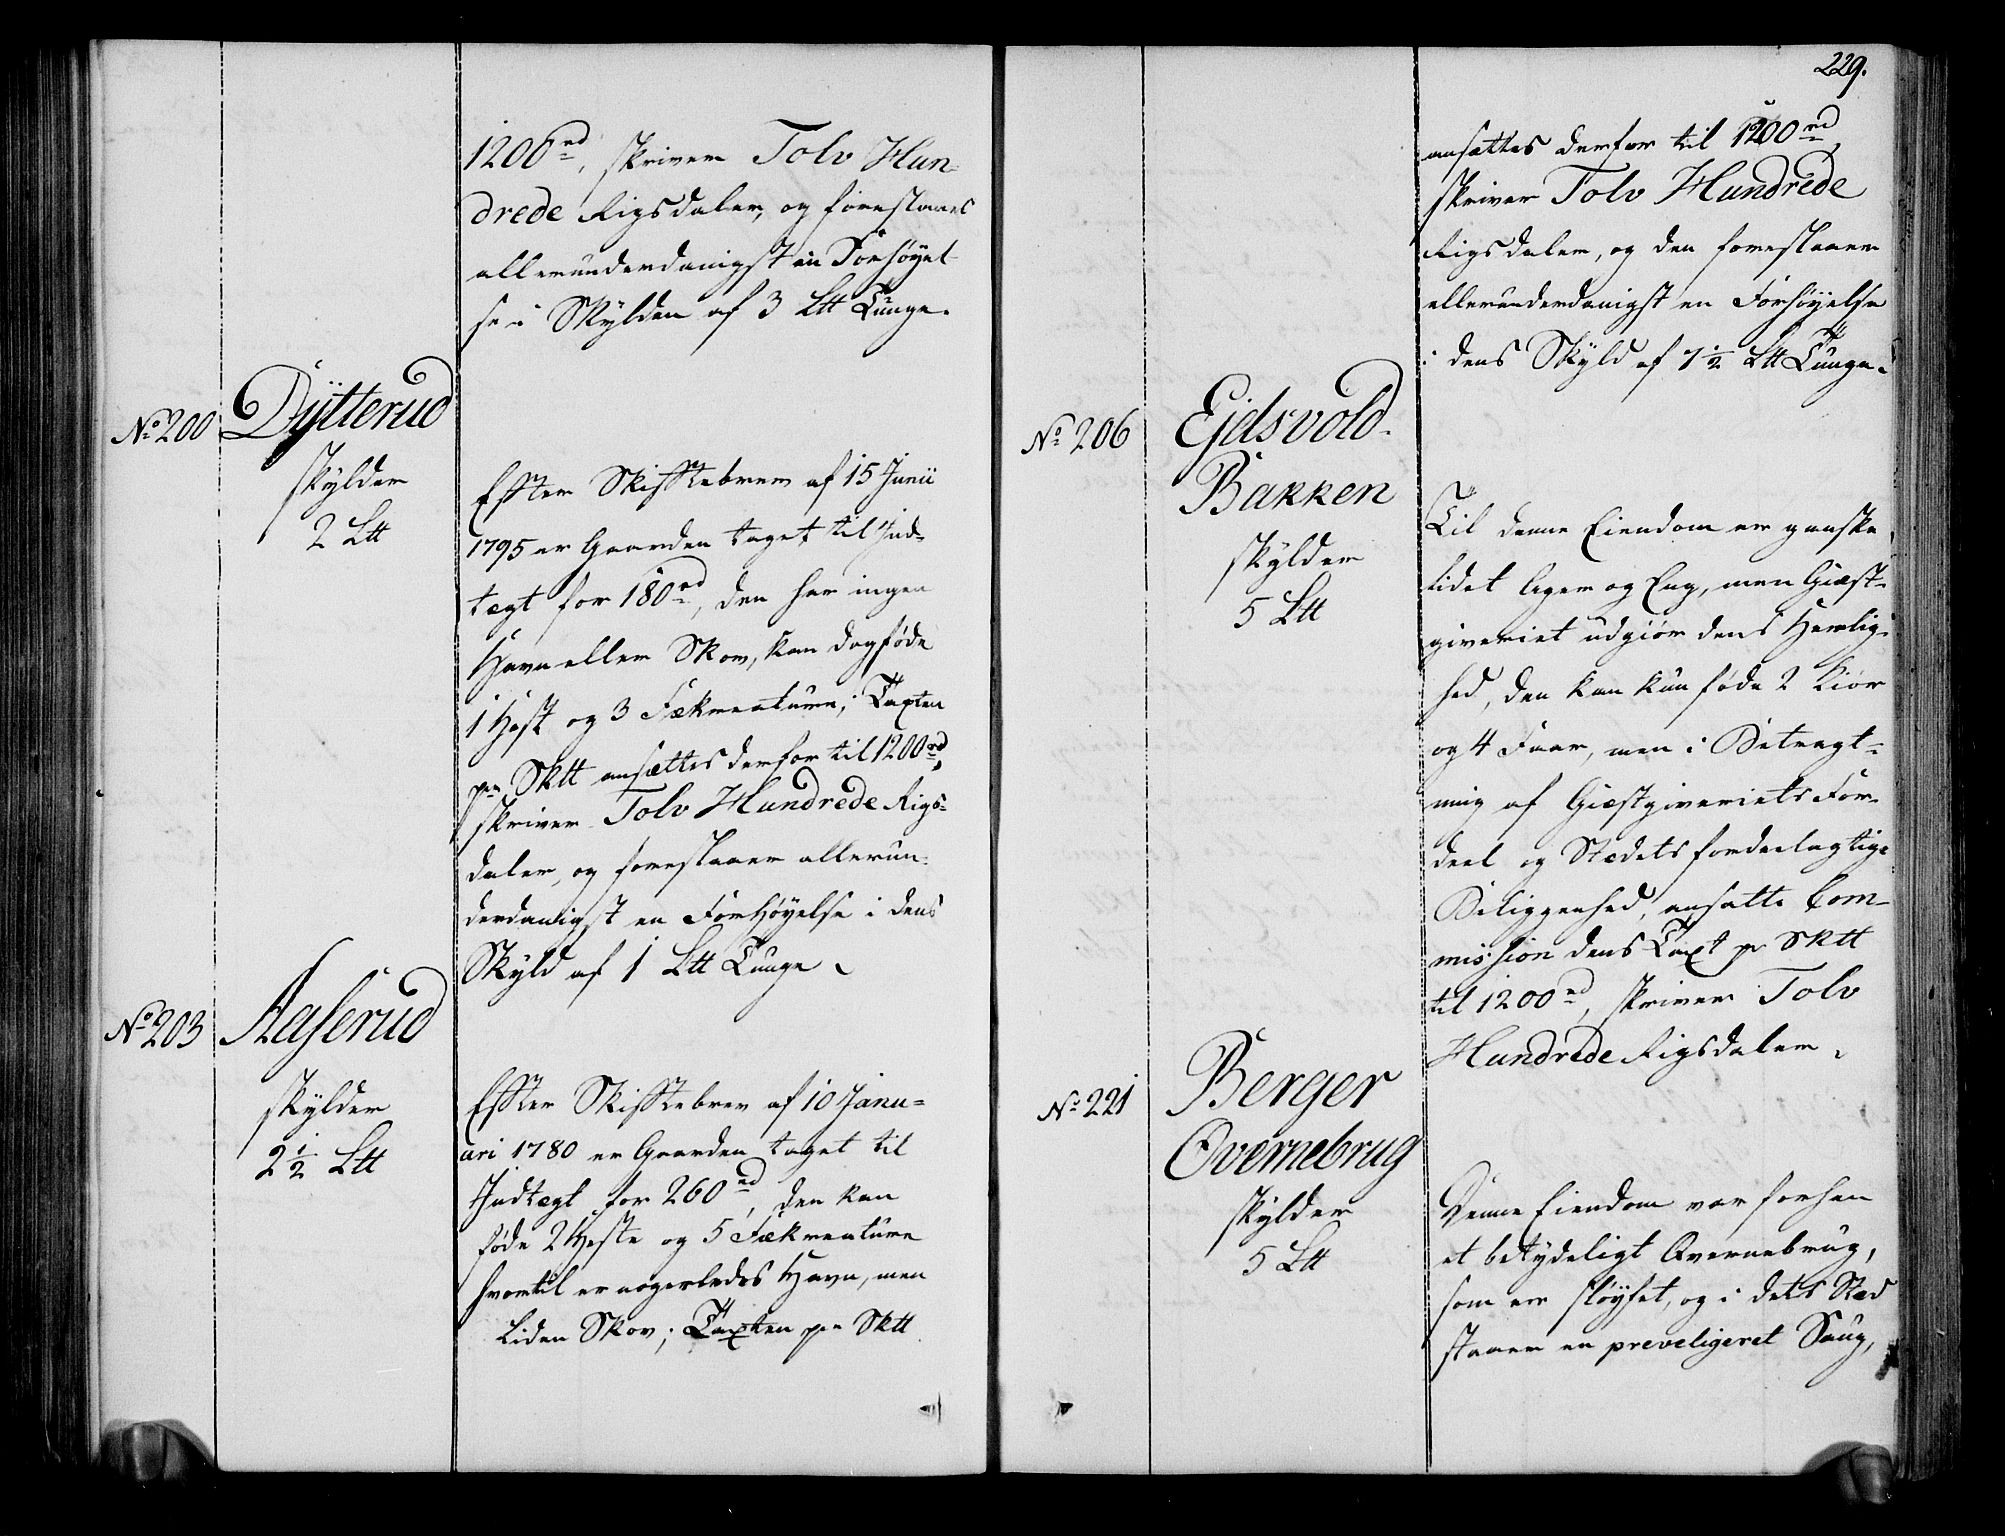 1200 rd, skriver Tolv Hun-
drede Rigsdaler, og foreslaaes
allerunderdanigst en Forhøyel-
se i Skylden af 3 Ltt Tunge.
No 200
Dÿtterud
skylder
2 Ltt
Effter Skifftebrev af 15 Junii
1795 er Gaarden taget til Ind-
tægt for 180 rd, den har ingen
Havn eller Skov, kan dog føde
1 Hest og 3 Fækreature; Taxten
pr Sktt ansættes derfor til 1200 rd,
skriver Tolv Hundrede Rigs-
daler, og foreslaaer allerun-
derdanigst en Forhøyelse i dens
Skyld af 1 Ltt Tunge.
No 203
Aaserud
skylder
2 1/2 Ltt
Effter Skifftebrev af 10 Janu-
ari 1780 er Gaarden taget til
Indtægt for 260 rd, den kan
føde 2 Heste og 5 Fækreature
hvortil er nogerledes Havn, men
liden Skov; Taxten pr Sktt
229.
ansættes derfor til 1200 rd,
skriver Tolv Hundrede
Rigsdaler, og den foreslaaer
allerunderdanigst en Forhøyelse
i dens Skyld af 1 1/2 Ltt Tunge.
No 206
Ejdsvold-
Bakken
skylder
5 Ltt
Til denne Eiendom er ganske
lidet Ager og Eng, men Giæst-
giveriet udgiør dens Herlig-
hed, den kan kun føde 2 Kiør
og 4 Faar, men i Betragt-
ning af Giæstgiveriets For-
deel og Stædets fordeelagtige
Beliggenhed, ansatte Com-
mission dens Taxt pr Sktt
til 1200 rd, skriver Tolv
Hundrede Rigsdaler.
No 221
Berger
Qvernebrug
skylder
5 Ltt
Denne Eiendom var forhen
et betydeligt Qvernebrug,
som er sløyfet, og i dets Stæd
staaer en preveligeret Saug,